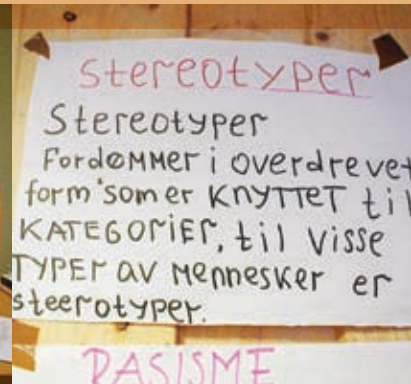 stereotyper
Stereotyper
Fordømmer i overdrevet
form som er KNYTTET til
KATEGORIER, til visse
TYPER av mennesker er
steerotyper.
RASISME